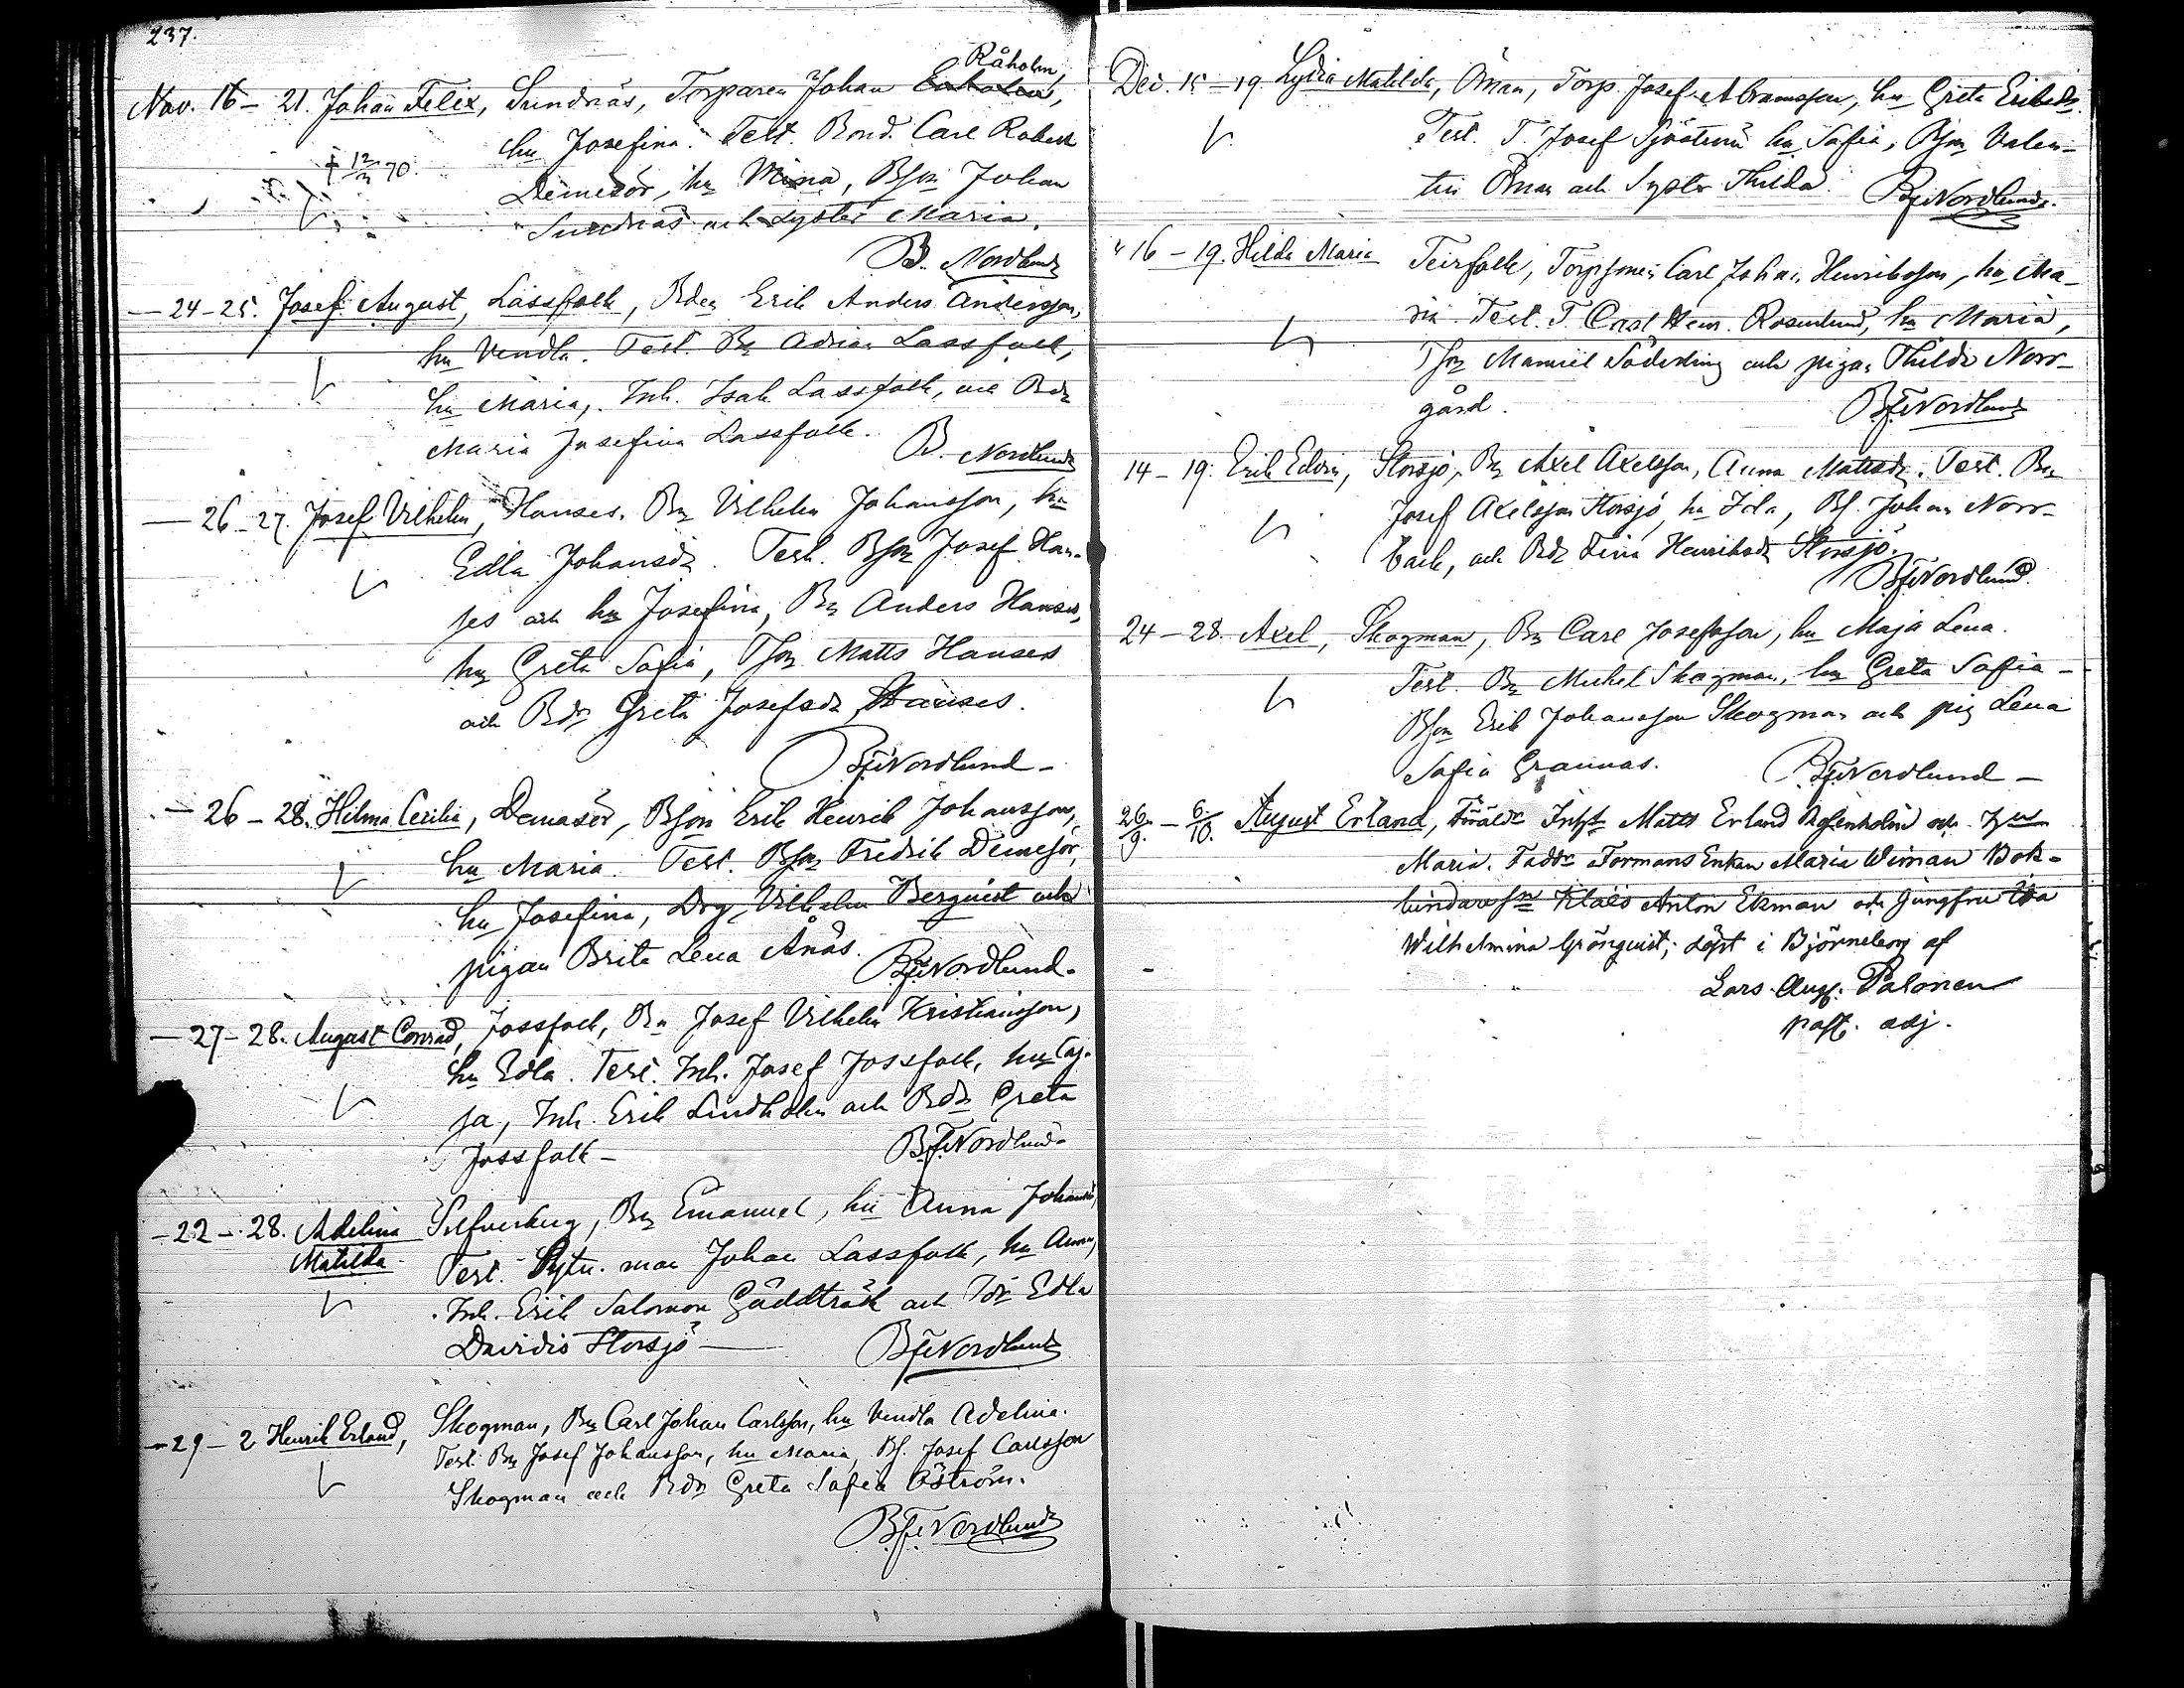 237.
Råholm,
Nov. 16 – 21. Johan Felix, Sundnäs, Torparen Johan
hu Josefina. Test. Bond. Carl Robert
† 12/2 70.
Demesör, hu Mina, Bson Johan
Sundnäs och Syster Maria.
B. Nordlund
— 24 – 25. Josef August, Lassfolk, Bden Erik Anders Andersson,
hu Vendla. Test. Bn Adrian Lassfolk,
hu Maria, Inh. Isak Lassfolk, och Bdr
Maria Josefina Lassfolk.
B. Nordlund
— 26 – 27. Josef Vilhelm, Hanses, Bn Vilhelm Johansson, hu
Edla Johansdr. Test. Bson Josef Han-
ses och hu Josefina, Bn Anders Hanses,
hu Greta Sofia, Tson Matts Hanses
och Bdr Greta Josefsdr Hanses.
BFNordlund –
— 26 – 28. Hilma Cecilia, Demasör, Bson Erik Henrik Johansson,
hu Maria. Test. Bson Fredrik Demesör,
hu Josefina, Drg Vilhelm Berquist och
pigan Brita Lena Ånäs.
BFNordlund.
— 27 – 28. August Conrad, Jossfolk, Bn Josef Vilhelm Kristiansson,
hu Edla. Test. Inh. Josef Jossfolk, hu Caj-
sa, Inh. Erik Lindholm och Bdr Greta
Jossfolk –
BFNordlund.
— 22 – 28. Adelina Silfverberg, Bn Emanuel, hu Anna Johansd,
Matilda. Test. man Johan Lassfolk, hu Anna,
Inh. Erik Salomon Gäddträsk och Tdr Edla
Davidis Storsjö —
BFNordlund
— 29 – 2 Henrik Erland, Skogman, Bn Carl Johan Carlsson, hu Vendla Adelina.
Test. Bn Josef Johansson, hu Maria, Bs. Josef Carlsson
Skogman och Bdr Greta Sofia Åström.
BFNordlund
Dec. 15 – 19 Lydia Matilda, Öman, Torp. Josef Abramsson, hu Greta Eriksdr.
Test. T. Josef hu Sofia, Bson Valen-
tin Öman och Syster Thilda.
BFNordlund.
" 16 – 19. Hilda Maria Teirfolk, Torpsonen Carl Johan Henriksson, hu Ma-
ria. Test. T. Carl Henr. Rosenlund, hu Maria,
Tson Manuel Söderling och pigan Thilda Norr-
gård.
BFNordlund
14 – 19. Erik Edvin, Storsjö, Bn Axel Axelsson, Anna Mattsdr. Test. Bn
Josef Axelsson Storsjö, hu Ida, Bs. Johan Norr-
back, och Bdr Fina Henriksdr Storsjö.
BFNordlund.
24 – 28. Axel, Skogman, Bn Carl Josefsson, hu Maja Lena.
Test. Bn Mickel Skogman, hu Greta Sofia –
Bson Erik Johansson Skogman och pig Lena
Sofia Grannas.
BFNordlund –
26/9. – 6/10. August Erland, Föräldr Inspt Matts Erland Rosenholm och hu
Maria. Faddr Formans Enkan Maria Wiman Bok-
bindaresn Klaes Anton Ekman och Jungfru Ida
Wilhelmina Grönquist; döpt i Björneborg af
Lars Aug. Palonen
past. adj.